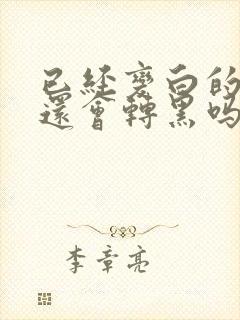 已經變白的
還會轉黑嗎
李章亮